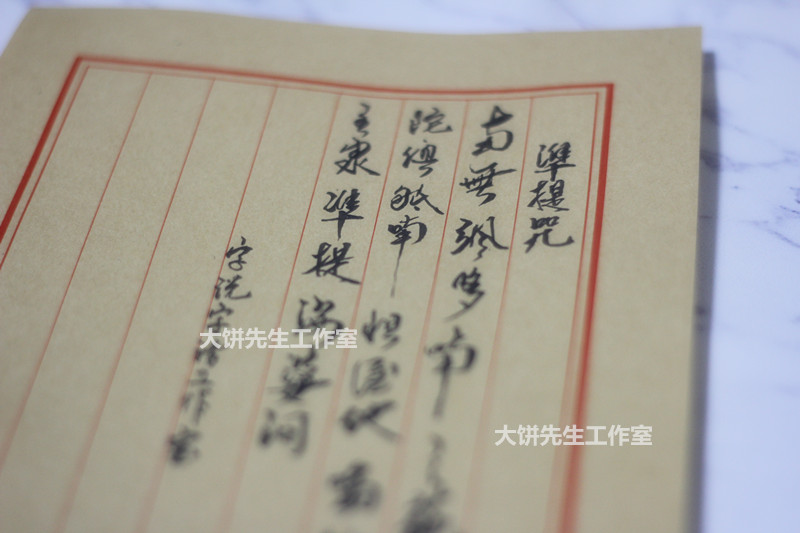 準提咒
南無颯哆喃三藐
陀俱胝喃怛侄他
主隶準提娑婆诃
工作室
大饼先生工作室
大饼先生工作室